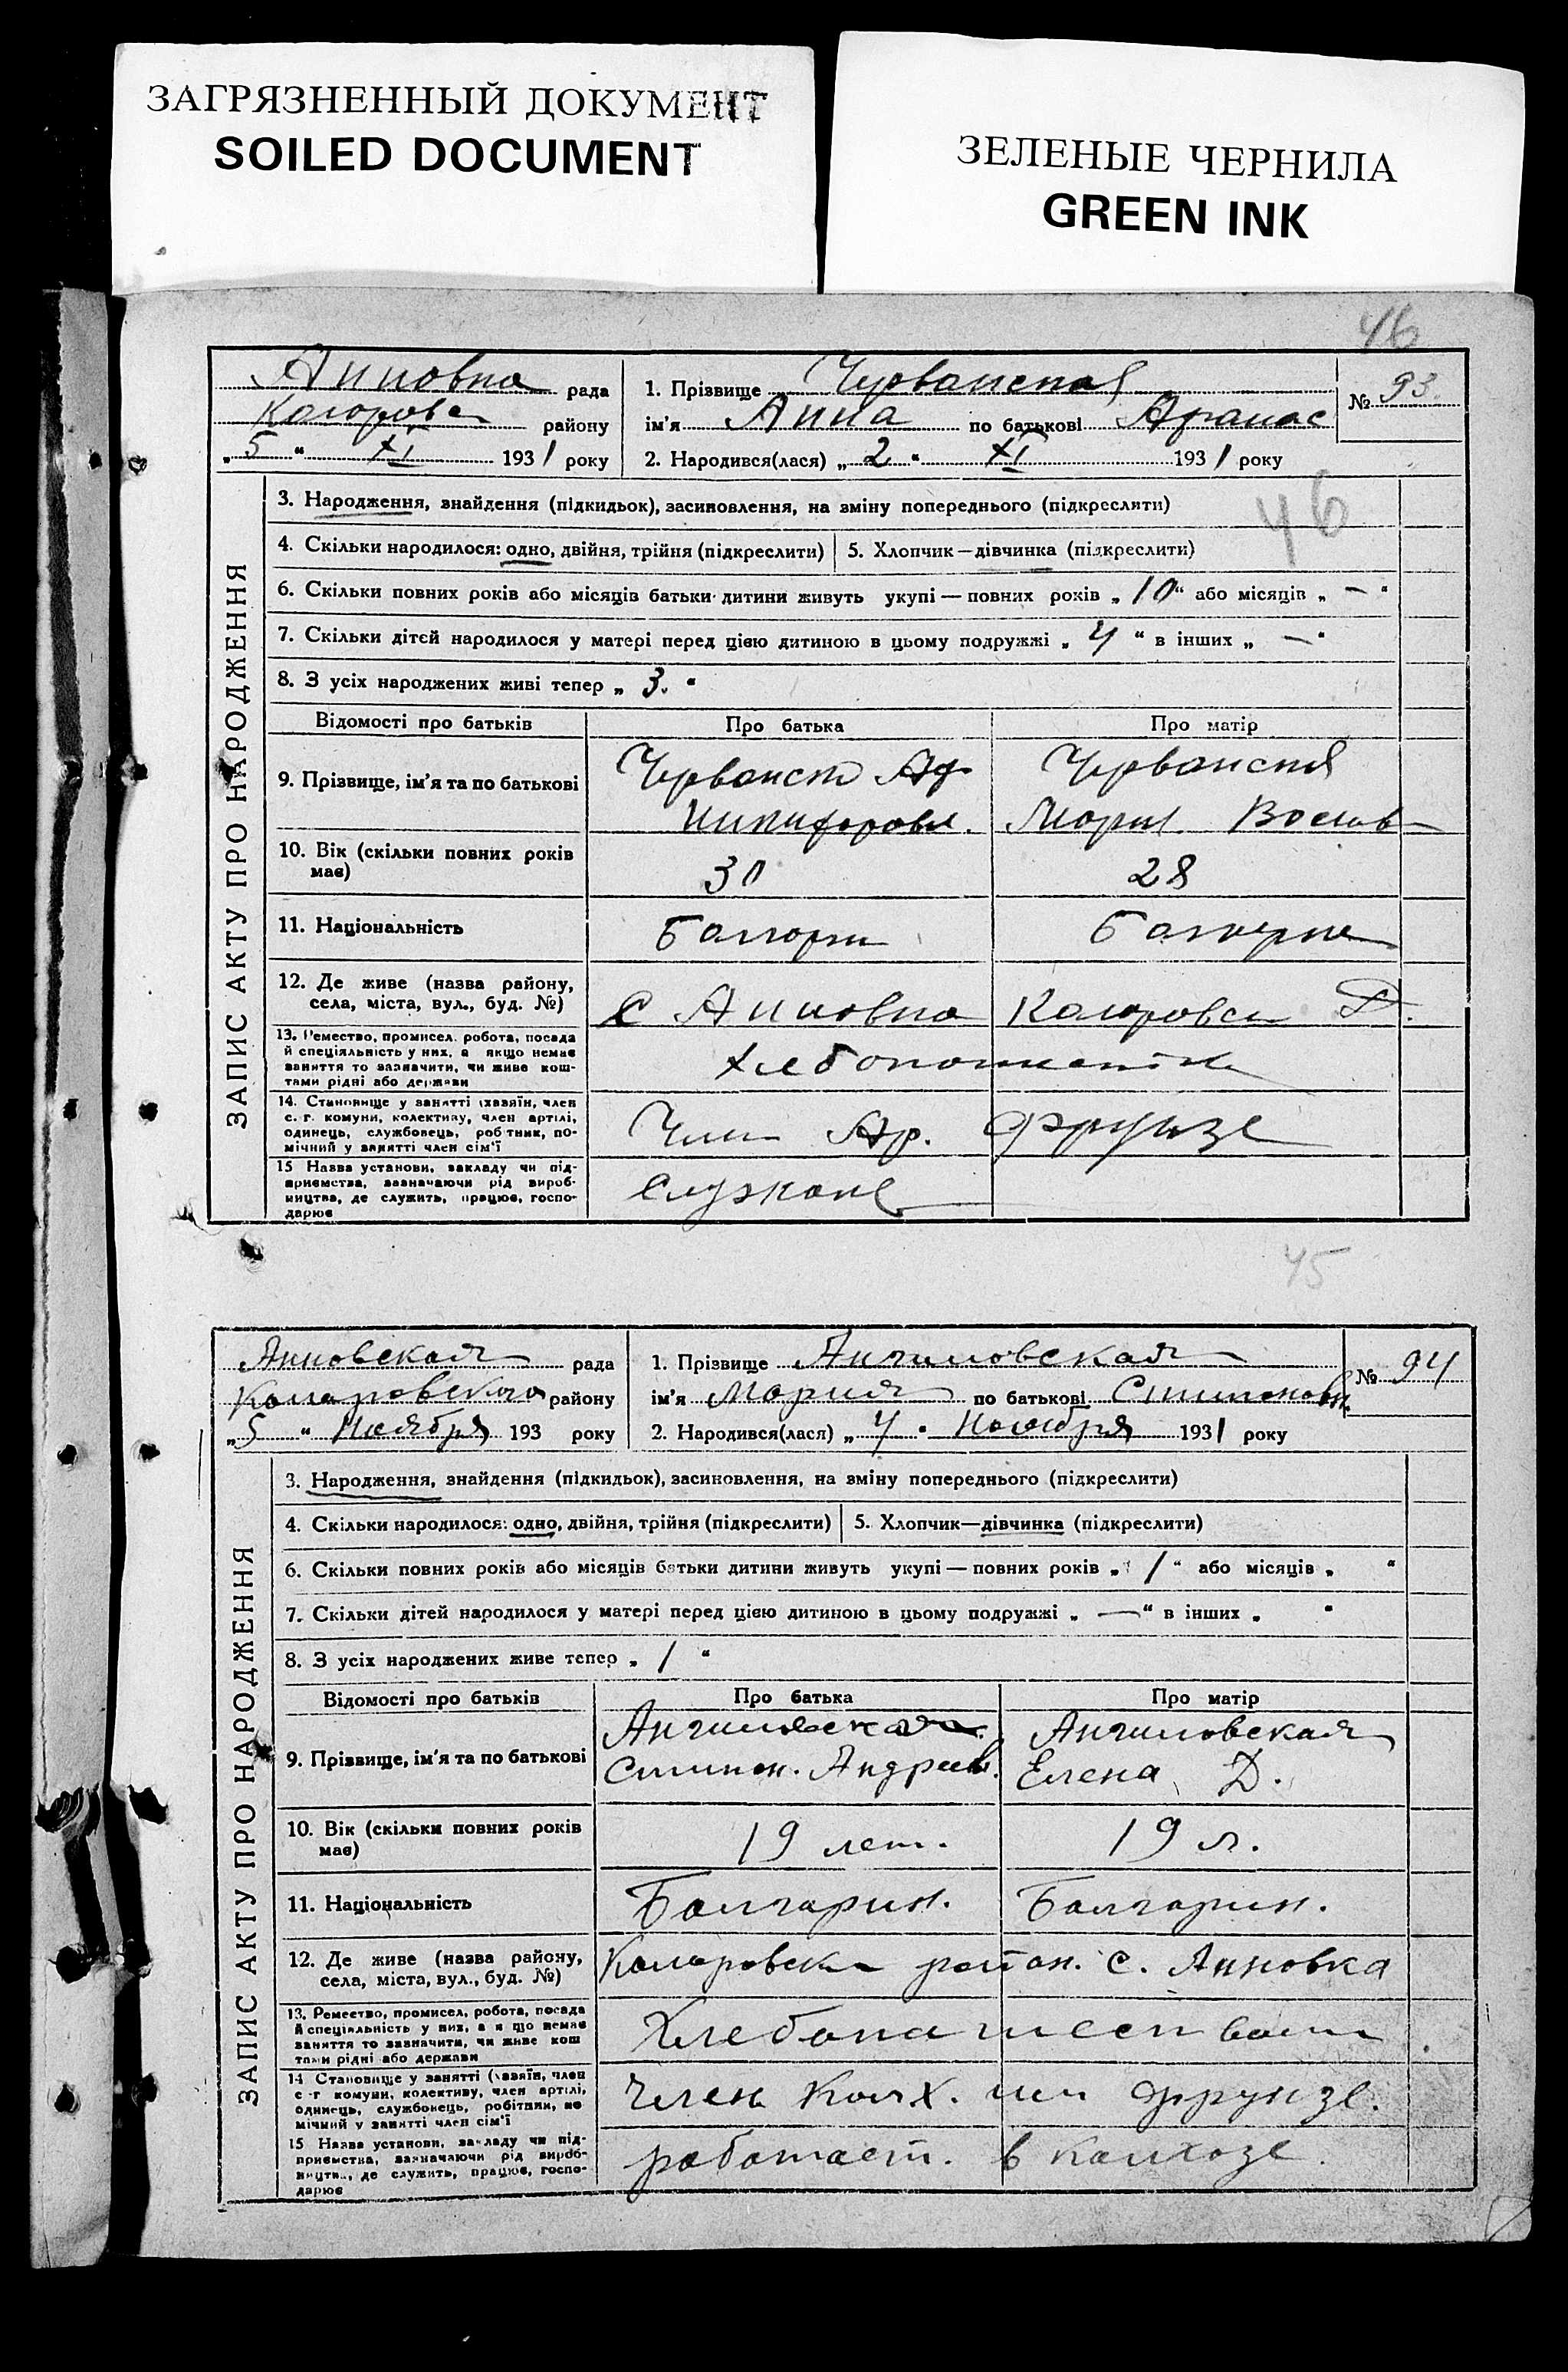 ЗАГРЯЗНЕННЫЙ ДОКУМЕНТ
SOILED DOCUMENT
ЗЕЛЕНЫЕ ЧЕРНИЛА
GREEN INK
46
Анновка рада
району
„5“ XI 1931 року
1. Прізвище
ім'я Анна по батькові Афанас
№ 93
2. Народився(лася) „2“ XI 1931 року
46
ЗАПИС АКТУ ПРО НАРОДЖЕННЯ
3. Народження, знайдення (підкидьок), засиновлення, на зміну попереднього (підкреслити)
4. Скільки народилося: одно, двійня, трійня (підкреслити)
5. Хлопчик — дівчинка (підкреслити)
6. Скільки повних років або місяців батьки дитини живуть укупі — повних років „10“ або місяців „—“
7. Скільки дітей народилося у матері перед цією дитиною в цьому подружжі „4“ в інших „—“
8. З усіх народжених живі тепер „3.“
Відомості про батьків
Про батька
Про матір
9. Прізвище, ім'я та по батькові
10. Вік (скільки повних років
має)
30
28
11. Національність
12. Де живе (назва району,
села, міста, вул., буд. №)
С Анновка
13. Ремество, промисел, робота, посада
й спеціяльність у них, а якщо немає
заняття то зазначити, чи живе кош-
тами рідні або держави
14. Становище у занятті (хазяїн, член
с.-г. комуни, колективу, член артілі,
одинець, службовець, робітник, по-
мічний у занятті член сім'ї
Член Ар. Фрунзе
15 Назва установи, закладу чи під-
приємства, зазначаючи рід вироб-
ництва, де служить, працює, госпо-
дарює
45
Анновская рада
Коларовского району
„5“ Ноября 193 року
1. Прізвище Ангиловская
ім'я Мария по батькові
№ 94
2. Народився(лася) „4“ Ноября 1931 року
ЗАПИС АКТУ ПРО НАРОДЖЕННЯ
3. Народження, знайдення (підкидьок), засиновлення, на зміну попереднього (підкреслити)
4. Скільки народилося: одно, двійня, трійня (підкреслити)
5. Хлопчик—дівчинка (підкреслити)
6. Скільки повних років або місяців батьки дитини живуть укупі — повних років „1“ або місяців „ “
7. Скільки дітей народилося у матері перед цією дитиною в цьому подружжі „—“ в інших „ “
8. З усіх народжених живе тепер „1“
Відомості про батьків
Про батька
Про матір
9. Прізвище, ім'я та по батькові
Андреев.
Ангиловская
Елена Д.
10. Вік (скільки повних років
має)
19 лет.
19 л.
11. Національність
Болгарин.
Болгарин.
12. Де живе (назва району,
села, міста, вул., буд. №)
район. с. Анновка
13. Ремество, промисел, робота, посада
й спеціяльність у них, а якщо немає
заняття то зазначити, чи живе кош
тами рідні або держави
14 Становище у занятті (хазяїн, член
с.-г комуни, колективу, член артілі,
одинець, службовець, робітник, по
мічний у занятті член сім'ї
Член Колх. им Фрунзе.
15 Назва установи, закладу чи під-
приємства, зазначаючи рід вироб-
ництва, де служить, працює, госпо-
дарює
работает. в колхозе.